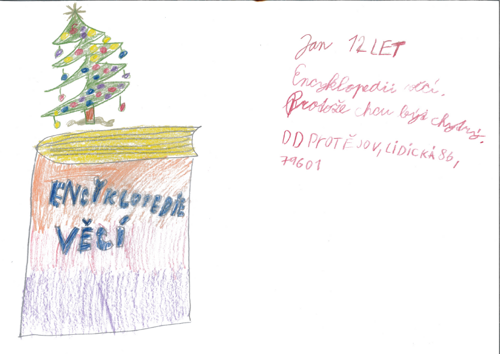 ENCYKLOPEDIE
VĚCÍ
Jan 12 LET
Encyklopedii věcí.
Protože chci být chytrý.
DD PROTĚJOV, LIDICKÁ 86,
79601